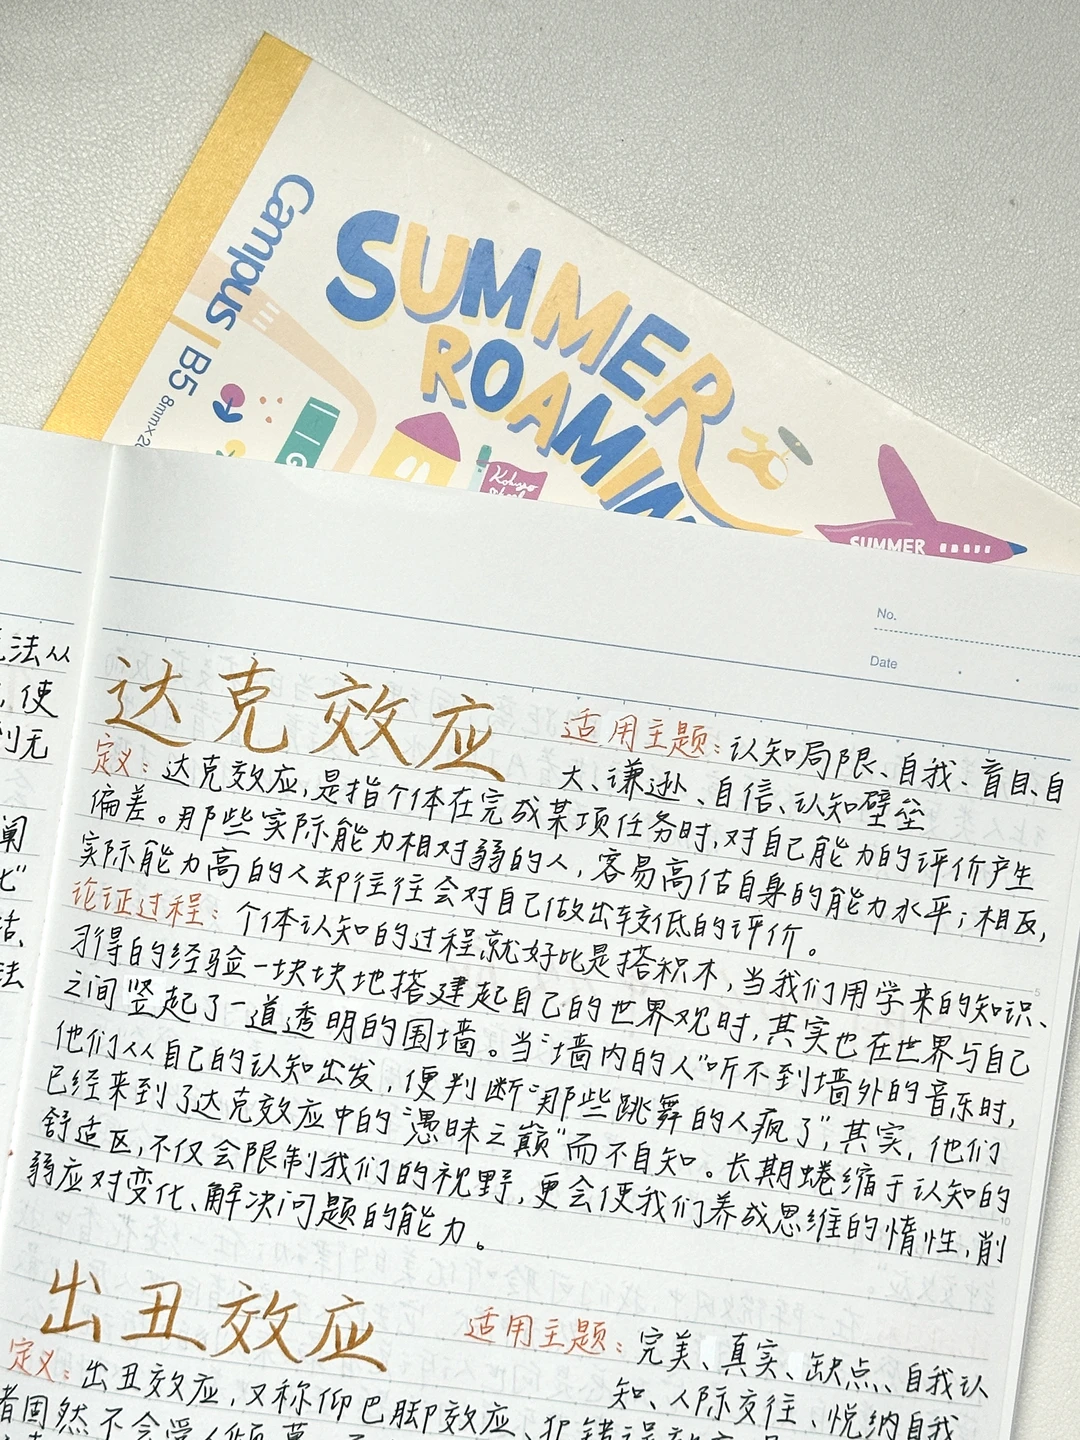 Campus
B5
8mm×2
SUMMER
ROAMIN
Kokuyo
SUMMER
No.
Date
法从
使
无
阐
化”
法
达克效应
适用主题：认知局限、自我、盲目、自
大、谦逊、自信、认知壁垒
定义：达克效应，是指个体在完成某项任务时，对自己能力的评价产生
偏差。那些实际能力相对弱的人，容易高估自身的能力水平；相反，
实际能力高的人却往往会对自己做出较低的评价。
论证过程：个体认知的过程就好比是搭积木，当我们用学来的知识、
习得的经验一块块地搭建起自己的世界观时，其实也在世界与自己
之间竖起了一道透明的围墙。当“墙内的人”听不到墙外的音乐时，
他们从自己的认知出发，便判断“那些跳舞的人疯了”，其实，他们
已经来到了达克效应中的“愚昧之巅”而不自知。长期蜷缩于认知的
舒适区，不仅会限制我们的视野，更会使我们养成思维的惰性，削
弱应对变化、解决问题的能力。
出丑效应
适用主题：完美、真实、缺点、自我认
知、人际交往、悦纳自我
定义：出丑效应，又称仰巴脚效应、犯错误效应
者固然不会受人倾慕
5
10